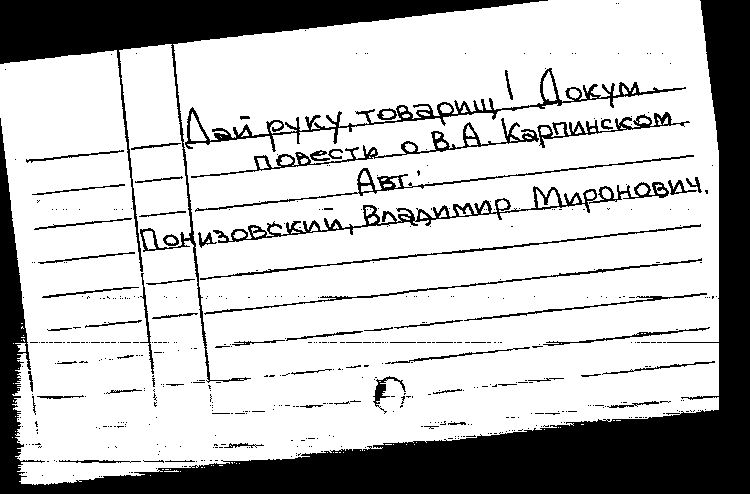 Дай руку, товарищ! Докум.
повесть о В. А. Карпинском.
Авт.:
Понизовский, Владимир Миронович.